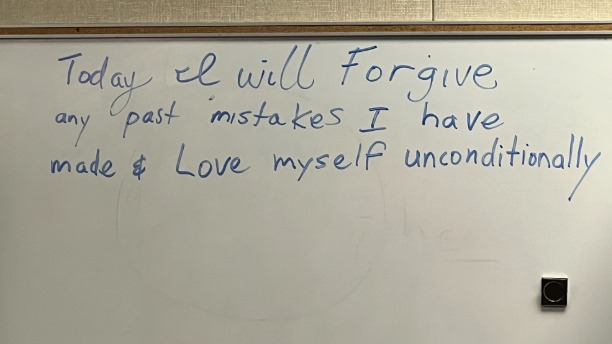 Today I will Forgive
any past mistakes I have
made & Love myself unconditionally